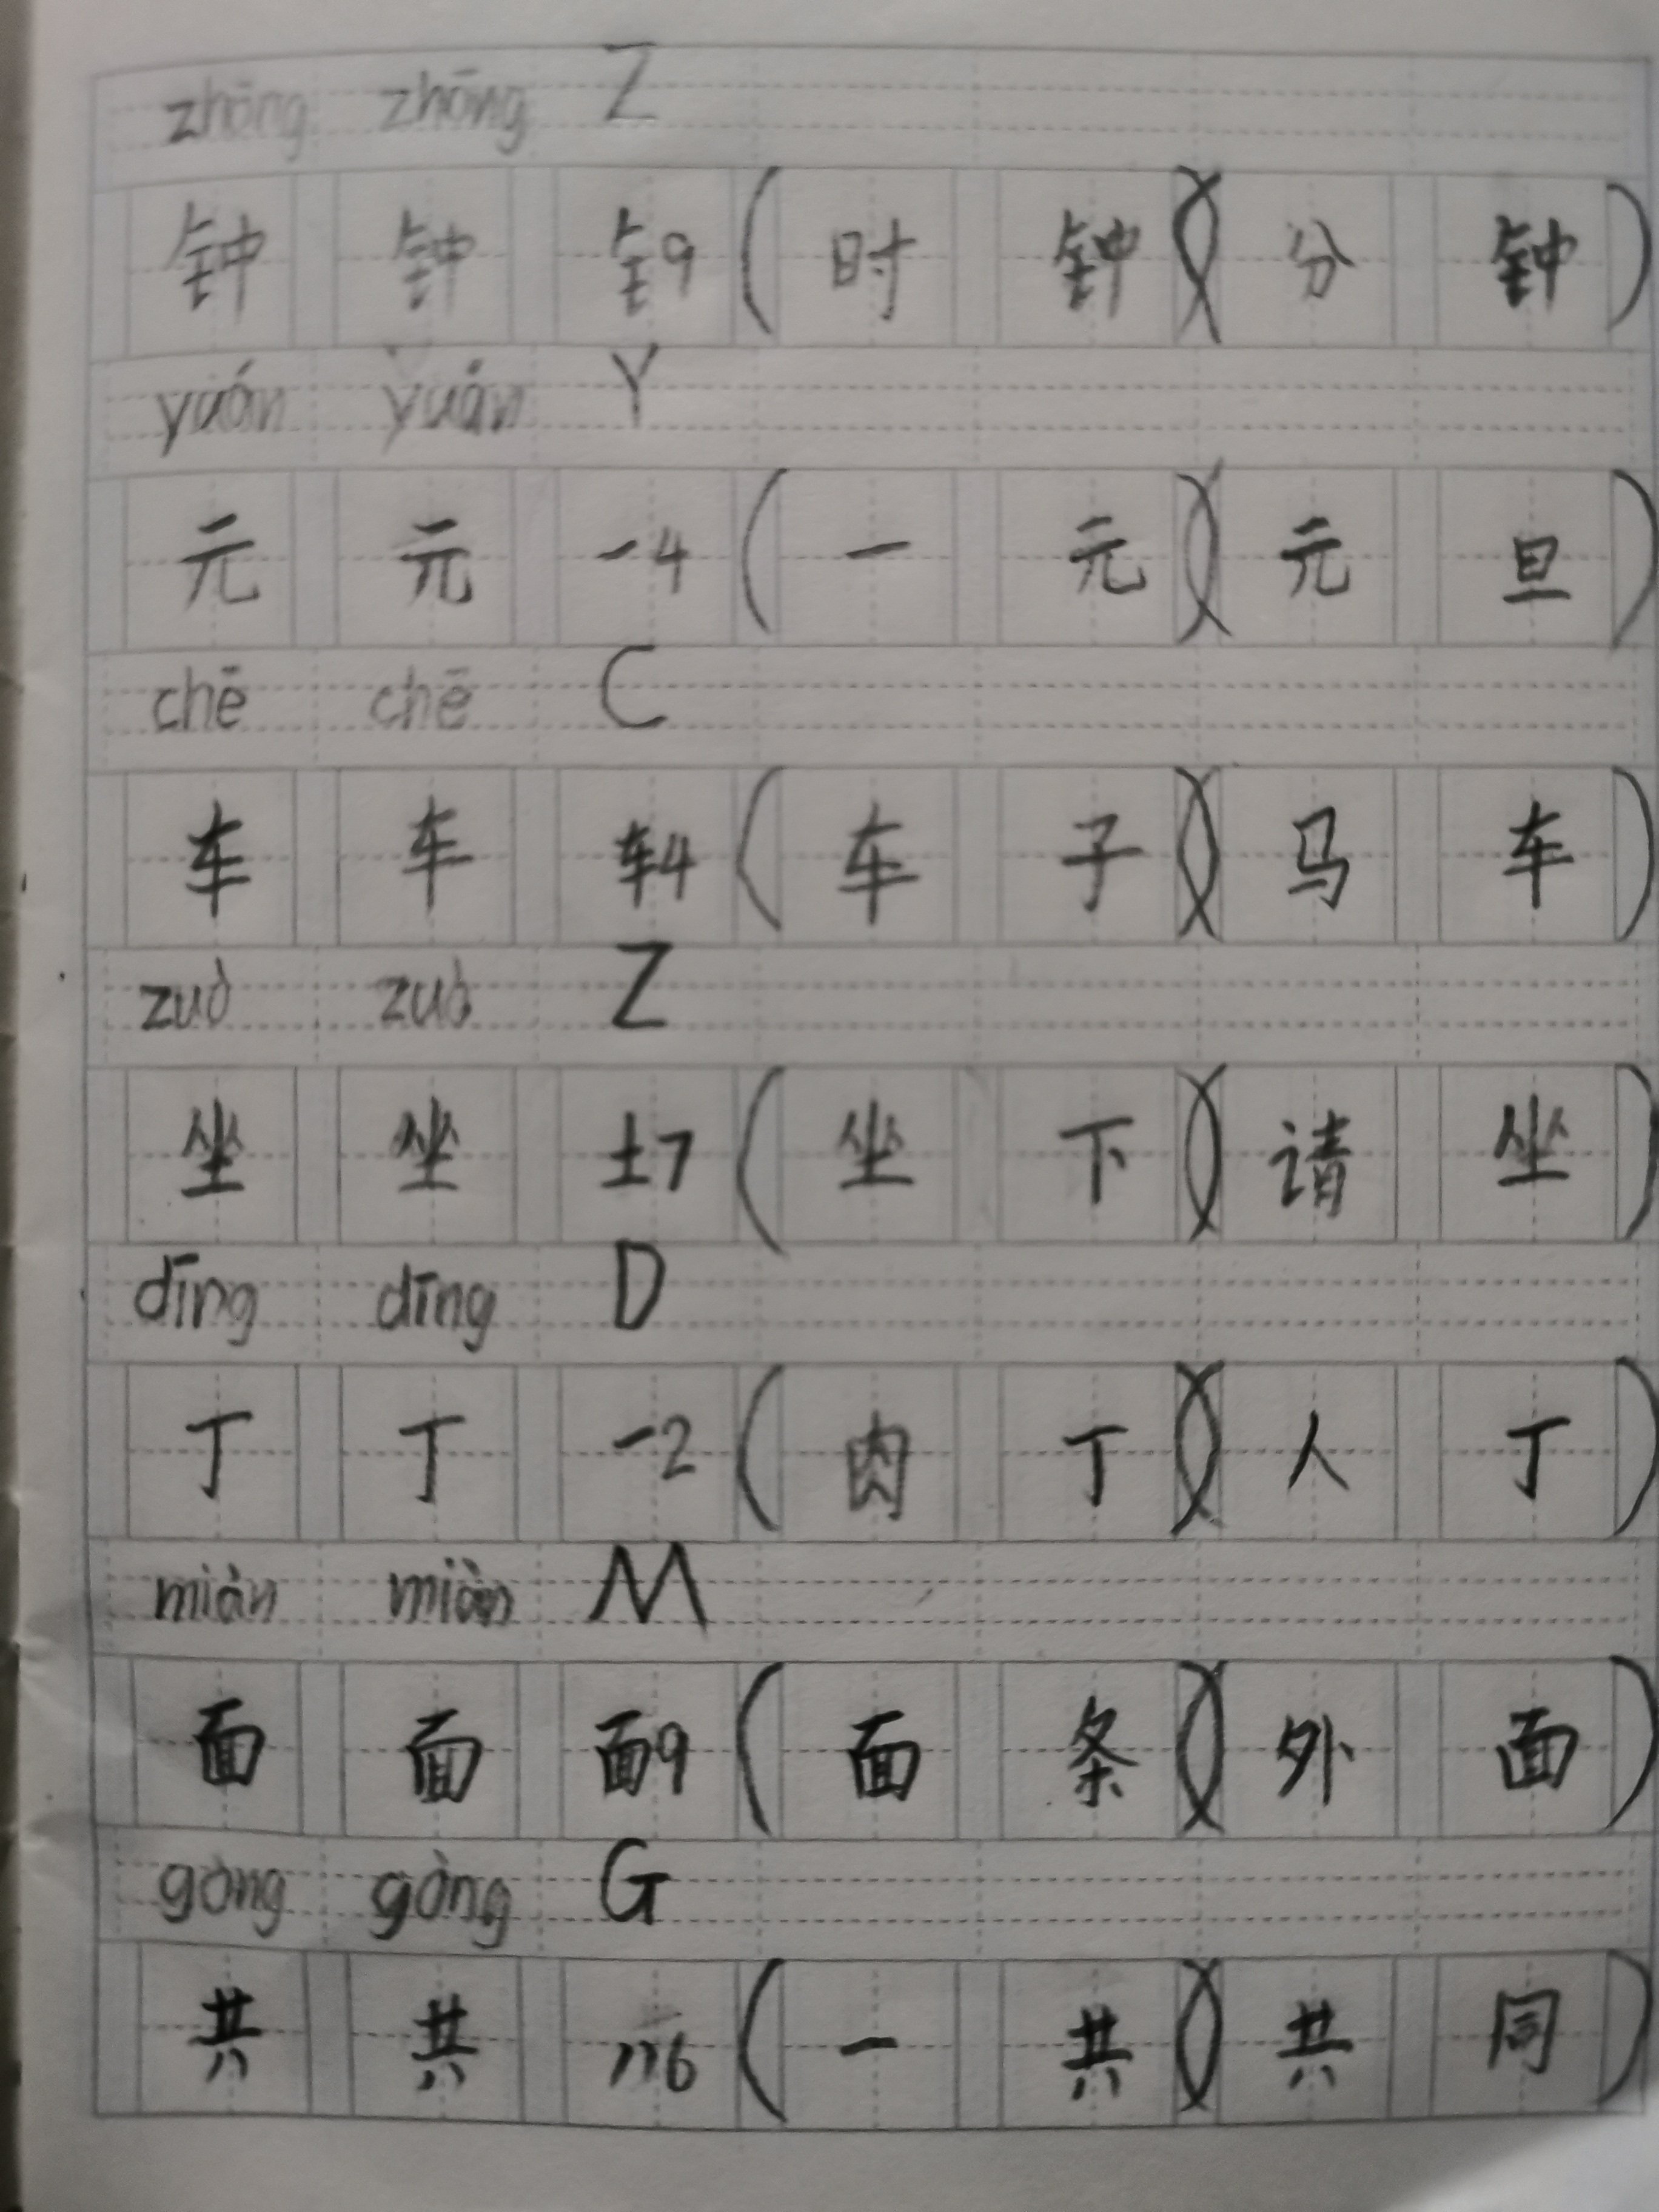 zhōng zhōng Z
钟 钟 钅9 (时 钟)(分 钟)
yuán yuán Y
元 元 一4 (一 元)(元 旦)
chē chē C
车 车 车4 (车 子)(马 车)
zuò zuò Z
坐 坐 土7 (坐 下)(请 坐)
dīng dīng D
丁 丁 一2 (肉 丁)(人 丁)
miàn miàn M
面 面 面9 (面 条)(外 面)
gòng gòng G
共 共 八6 (一 共)(共 同)